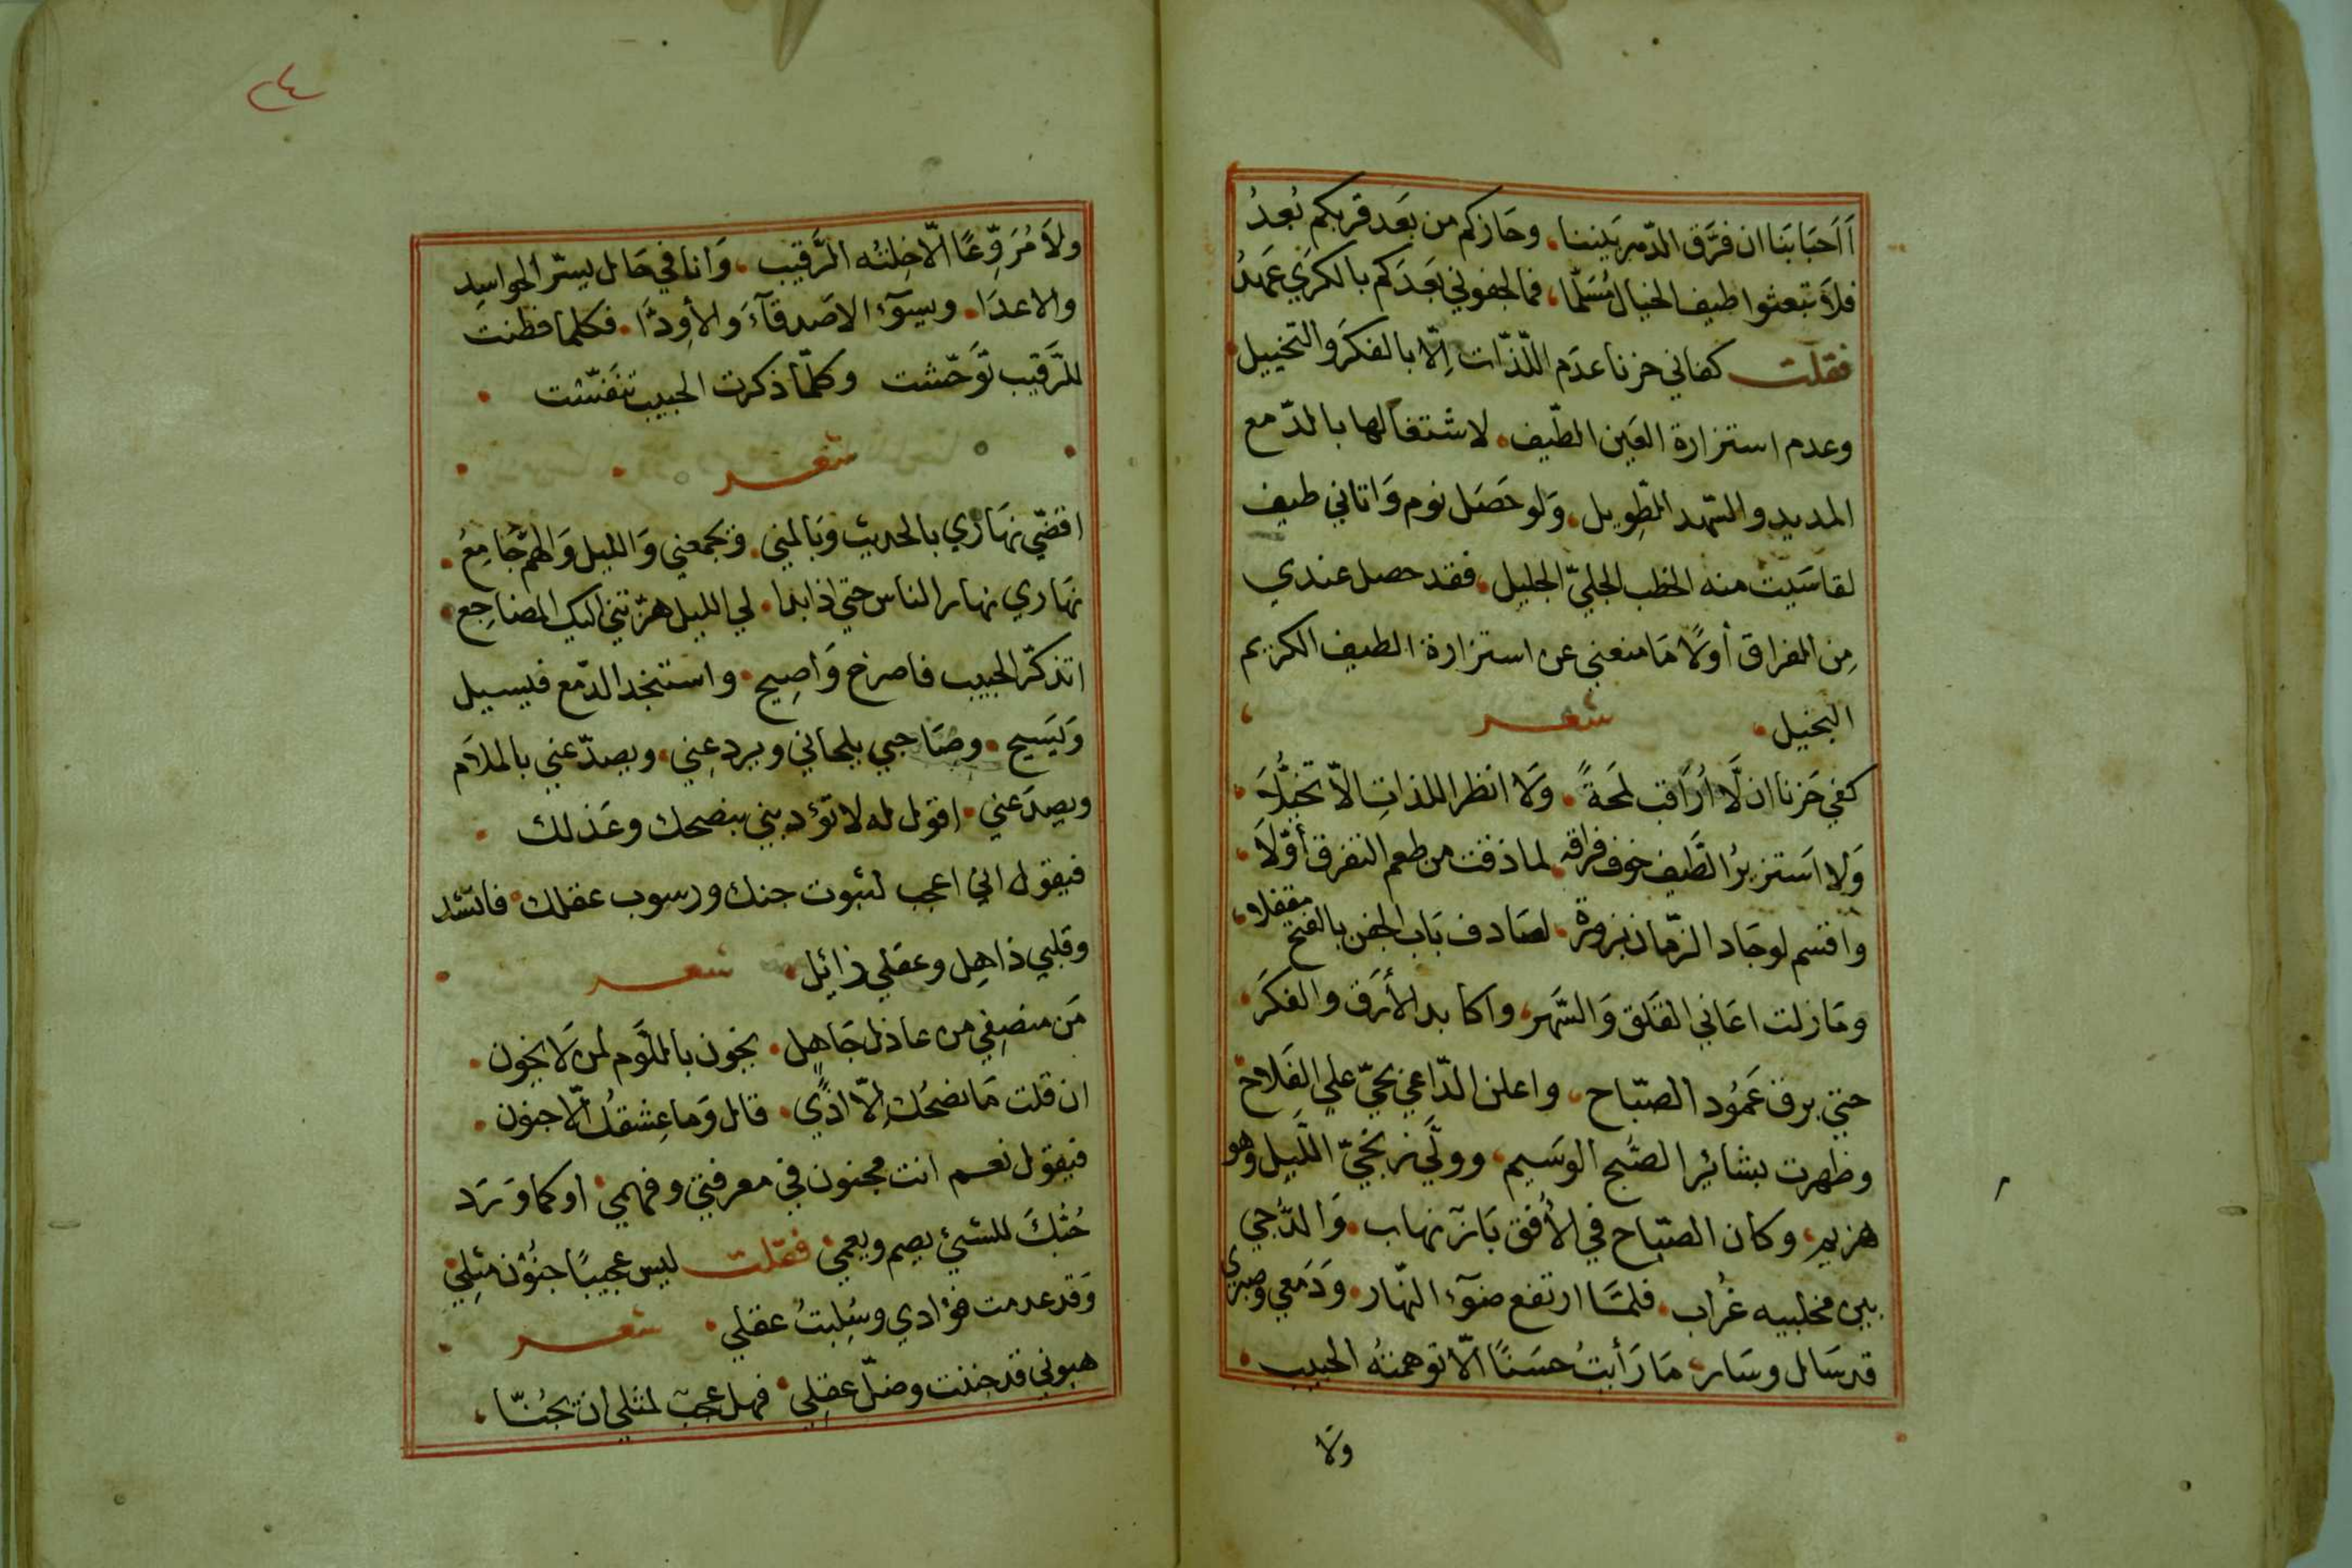 أَأَحبَابَنا ان فرَّق الدّهر بَيننا، وحَازكم من بعَد قربكم بُعدُ
فلاَ تبعثوا طيف الخيال مُسَلّما، فما لجفوني بَعدَكم بالكرَي عَهدُ
فقلت كفاني حزنا عدَم اللّذّات اِلّا بالفكَر والتخييل
وعدم استزارة العَين الطّيف. لاشتغالها بالدّمع
المديد والسّهد الطّويل. وَلو حَصَل نوم وَاتاني طيف
لقاسَيت منه الخطب الجليّ الجليل. فقد حصل عندي
مِن الفراق أولًا مَا منعني عن استزارة الطيف الكريم
البخيل. شعر
كفي حَزنا ان لَّا أُرَاقب لمَحةً. وَلا انظر اللذاتِ الاّ تخيُّلَا
وَلا اَستزيرُ الطَّيف خوف فراقه. لما ذقت من طعم التفرق أوّلَا
واقسم لو جَاد الزّمان بزورة. لصَادف بَاب الجفن بالفتح مقفلا،
ومَا زلت اعَاني القَلق وَالسَّهر، واكابد الأرَق والفكَر
حتي برق عَمُود الصبّاح، واعلن الدّاعي بحيّ علي الفَلاح
وظهرت بشائر الصُبح الوَسيم، وولّي زنجيّ اللّيل وهو
هزيم، وكان الصبّاح في الأُفق بَاز نهاب. وَالدُّجي
بين مخلبيه غُراب. فلمّا ارتفع ضوَء النّهار. وَدَمعي وصبري
قد سَال وسَار، مَا رَأيتُ حسَنًا الّا توهمتُه الحبيب.
ولا
٢٤
ولاَ مُرَوِّعًا الّا خِلتُه الرَّقيب. وَانا في حَال يسرّ الحواسِد
والاعدَا. ويسوَء الاصَدقآءَ والأودَّا. فكلما فطنت
للرَّقيب توَحّشت وكلّما ذكرت الحبيب تنفّست
شعر
اقضّي نهَاري بالحديث وَبالمني. وَيجمعني وَالليل وَالهمّ جَامِعُ.
نهَاري نهار الناس حتي اذا بدا. لي الليل هزّتني اليك المضَاجِع
اتذكّر الحبيب فاصرخ وَاصِيح. واستنجد الدّمع فيسيل
وَيَسيح. وصَاحبي يلحاني ويردعني. ويصدّعني بالملاَم
ويصدَعني. اقول له لا تؤدبني بنصحك وعَذلك
فيقول اني اعجب لثبوت جنك ورسوب عقلك. فانشد
وقلبي ذاهِل وعقلي زائِل. شعر
مَن منصِفي من عاذل جَاهِل. يخون باللَّوم لمن لَا يخون.
ان قلت مَا نصحُك اِلاّ اذًي. قال وَما عِشقُك الّا جنون.
فيقول نعم انت مجنون في معرفتي وفهمي. اوكما وَرَد
حُبُّكَ للشيئ يصم ويعمي. فقلت ليس عجيبًا جنُوْن مثِلي
وَقد عدمت فؤادي وسُلِبتُ عقلي. شعر
هبوني قد جننت وضلّ عقلِي. فهل عجبٌ لمثلي ان يجُنّا.